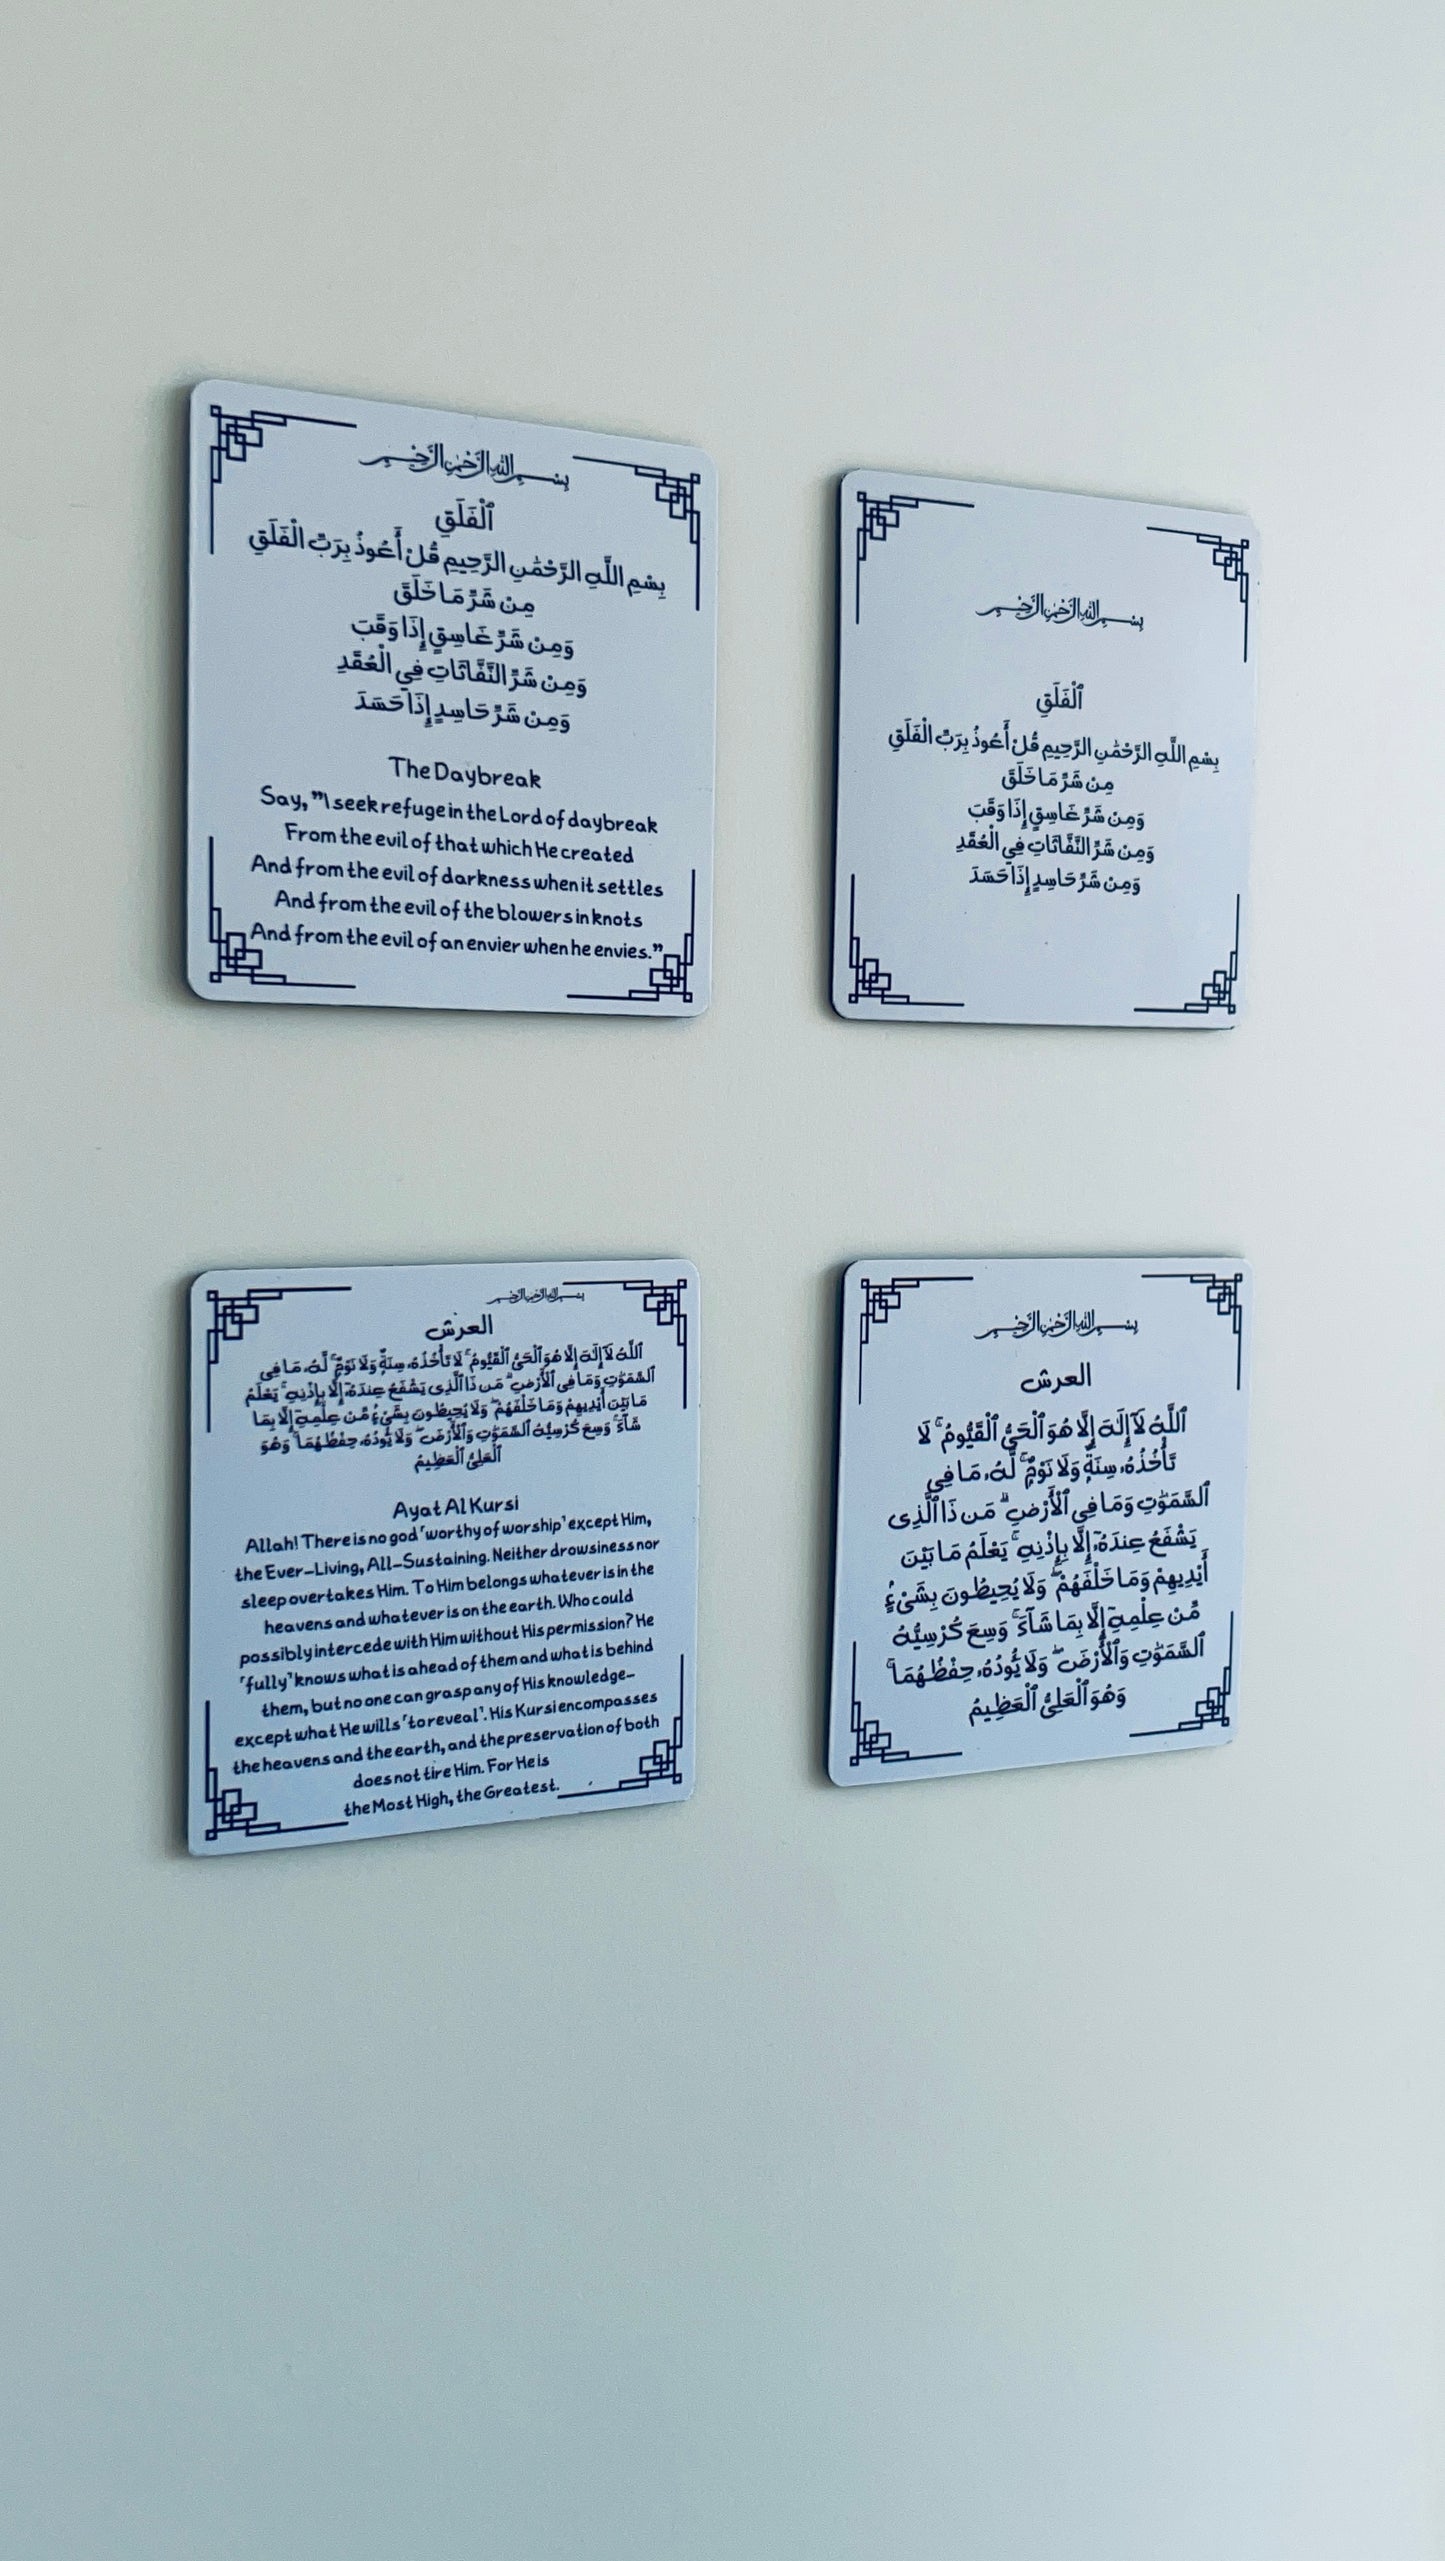 بسم الله الرحمن الرحيم
ٱلْفَلَقِ
بِسْمِ اللَّهِ الرَّحْمَٰنِ الرَّحِيمِ قُلْ أَعُوذُ بِرَبِّ الْفَلَقِ
مِنْ شَرِّ مَا خَلَقَ
وَمِنْ شَرِّ غَاسِقٍ إِذَا وَقَبَ
وَمِنْ شَرِّ النَّفَّاثَاتِ فِي الْعُقَدِ
وَمِنْ شَرِّ حَاسِدٍ إِذَا حَسَدَ
The Daybreak
Say, "I seek refuge in the Lord of daybreak
From the evil of that which He created
And from the evil of darkness when it settles
And from the evil of the blowers in knots
And from the evil of an envier when he envies."
بسم الله الرحمن الرحيم
ٱلْفَلَقِ
بِسْمِ اللَّهِ الرَّحْمَٰنِ الرَّحِيمِ قُلْ أَعُوذُ بِرَبِّ الْفَلَقِ
مِنْ شَرِّ مَا خَلَقَ
وَمِنْ شَرِّ غَاسِقٍ إِذَا وَقَبَ
وَمِنْ شَرِّ النَّفَّاثَاتِ فِي الْعُقَدِ
وَمِنْ شَرِّ حَاسِدٍ إِذَا حَسَدَ
بسم الله الرحمن الرحيم
العرش
ٱللَّهُ لَآ إِلَٰهَ إِلَّا هُوَ ٱلْحَىُّ ٱلْقَيُّومُ ۚ لَا تَأْخُذُهُۥ سِنَةٌ وَلَا نَوْمٌ ۚ لَّهُۥ مَا فِى
ٱلسَّمَٰوَٰتِ وَمَا فِى ٱلْأَرْضِ ۗ مَن ذَا ٱلَّذِى يَشْفَعُ عِندَهُۥٓ إِلَّا بِإِذْنِهِۦ ۚ يَعْلَمُ
مَا بَيْنَ أَيْدِيهِمْ وَمَا خَلْفَهُمْ ۖ وَلَا يُحِيطُونَ بِشَىْءٍ مِّنْ عِلْمِهِۦٓ إِلَّا بِمَا
شَآءَ ۚ وَسِعَ كُرْسِيُّهُ ٱلسَّمَٰوَٰتِ وَٱلْأَرْضَ ۖ وَلَا يَـُٔودُهُۥ حِفْظُهُمَا ۚ وَهُوَ
ٱلْعَلِىُّ ٱلْعَظِيمُ
Ayat Al Kursi
Allah! There is no god 'worthy of worship' except Him,
the Ever-Living, All-Sustaining. Neither drowsiness nor
sleep overtakes Him. To Him belongs whatever is in the
heavens and whatever is on the earth. Who could
possibly intercede with Him without His permission? He
'fully' knows what is ahead of them and what is behind
them, but no one can grasp any of His knowledge-
except what He wills 'to reveal'. His Kursi encompasses
the heavens and the earth, and the preservation of both
does not tire Him. For He is
the Most High, the Greatest.
بسم الله الرحمن الرحيم
العرش
ٱللَّهُ لَآ إِلَٰهَ إِلَّا هُوَ ٱلْحَىُّ ٱلْقَيُّومُ ۚ لَا
تَأْخُذُهُۥ سِنَةٌ وَلَا نَوْمٌ ۚ لَّهُۥ مَا فِى
ٱلسَّمَٰوَٰتِ وَمَا فِى ٱلْأَرْضِ ۗ مَن ذَا ٱلَّذِى
يَشْفَعُ عِندَهُۥٓ إِلَّا بِإِذْنِهِۦ ۚ يَعْلَمُ مَا بَيْنَ
أَيْدِيهِمْ وَمَا خَلْفَهُمْ ۖ وَلَا يُحِيطُونَ بِشَىْءٍ
مِّنْ عِلْمِهِۦٓ إِلَّا بِمَا شَآءَ ۚ وَسِعَ كُرْسِيُّهُ
ٱلسَّمَٰوَٰتِ وَٱلْأَرْضَ ۖ وَلَا يَـُٔودُهُۥ حِفْظُهُمَا ۚ
وَهُوَ ٱلْعَلِىُّ ٱلْعَظِيمُ